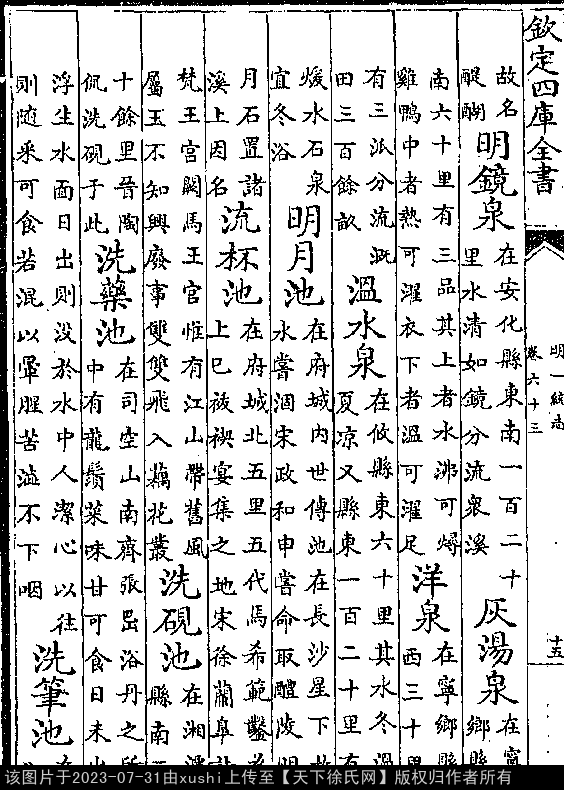 欽定四庫全書
明一統志
卷六十三
十五
故名
醍醐
明鏡泉
在安化縣東南一百二十
里水清如鏡分流衆溪
灰湯泉
在寧
鄉縣
南六十里有三品其上者水沸可燖
雞鴨中者熱可濯衣下者溫可濯足
洋泉
在寧鄉縣
西三十里
有三派分流溉
田三百餘畝
溫水泉
在攸縣東六十里其水冬溫
夏凉又縣東一百二十里有
煖水石泉
宜冬浴
明月池
在府城内世傳池在長沙星下故
水嘗涸宋政和中嘗命取醴陵明
月石置諸
溪上因名
流杯池
在府城北五里五代馬希範鑿為
上巳祓禊宴集之地宋徐蘭皐詩
梵王宫闕馬王宫惟有江山帶舊風
屬玉不知興廢事雙雙飛入藕花叢
洗硯池
在湘潭
縣南三
十餘里晉陶
侃洗硯于此
洗藥池
在司空山南齊張岊浴丹之所
中有龍鬚菜味甘可食日未出
浮生水面日出則没於水中人潔心以往
則随采可食若混以葷腥苦澁不下咽
洗筆池
该图片于2023-07-31由xushi上传至【天下徐氏网】版权归作者所有